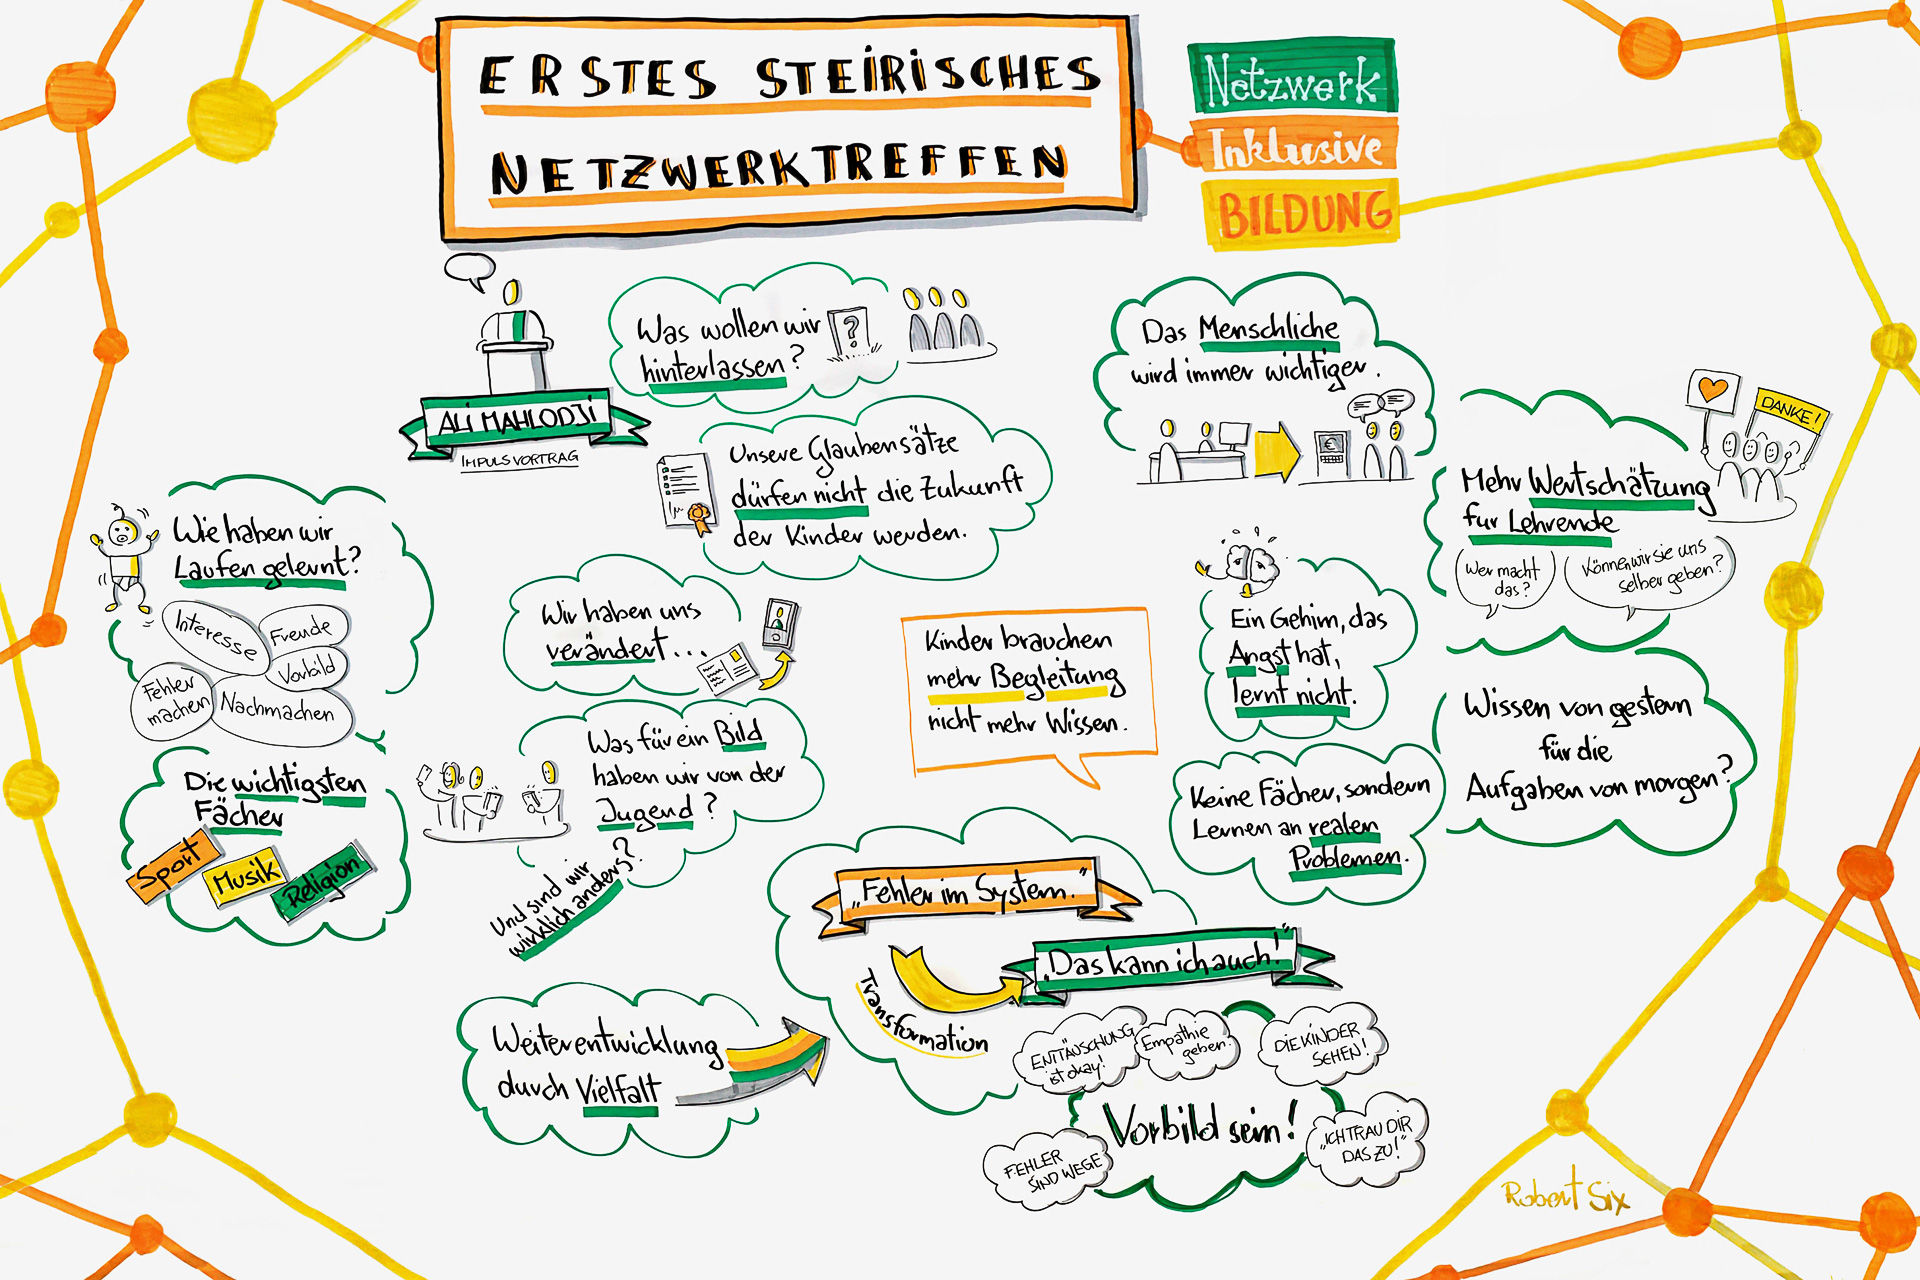 ERSTES STEIRISCHES
NETZWERKTREFFEN
Netzwerk
Inklusive
BILDUNG
ALI MAHLODJI
IMPULSVORTRAG
Was wollen wir
hinterlassen?
?
Unsere Glaubenssätze
dürfen nicht die Zukunft
der Kinder werden.
Das Menschliche
wird immer wichtiger.
€
DANKE!
Mehr Wertschätzung
für Lehrende
Wer macht
das?
Können wir sie uns
selber geben?
Wie haben wir
Laufen gelernt?
Interesse
Freude
Vorbild
Fehler
machen
Nachmachen
Die wichtigsten
Fächer
Sport
Musik
Religion
Wir haben uns
verändert...
Was für ein Bild
haben wir von der
Jugend?
Und sind wir
wirklich anders?
Kinder brauchen
mehr Begleitung
nicht mehr Wissen.
Ein Gehirn, das
Angst hat,
lernt nicht.
Keine Fächer, sondern
Lernen an realen
Problemen.
Wissen von gestern
für die
Aufgaben von morgen?
"Fehler im System."
Transformation
"Das kann ich auch!"
Weiterentwicklung
durch Vielfalt
ENTTÄUSCHUNG
ist okay!
Empathie
geben!
DIE KINDER
SEHEN!
Vorbild sein!
FEHLER
SIND WEGE
"ICH TRAU DIR
DAS ZU!"
Robert Six